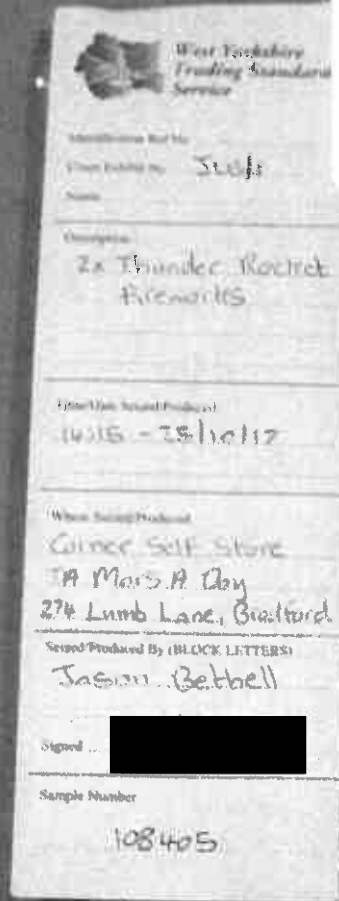 West Yorkshire
Trading Standards
Service
Identification Ref No
Court Exhibit No
Name
Description
2x Thunder Rocket
Fireworks
Time/Date Seized/Produced
25/10/17
Where Seized/Produced
Corner Self Store
A Mars A Day
274 Lumb Lane, Bradford
Seized/Produced By (BLOCK LETTERS)
Jason Bethell
Signed
Sample Number
108405